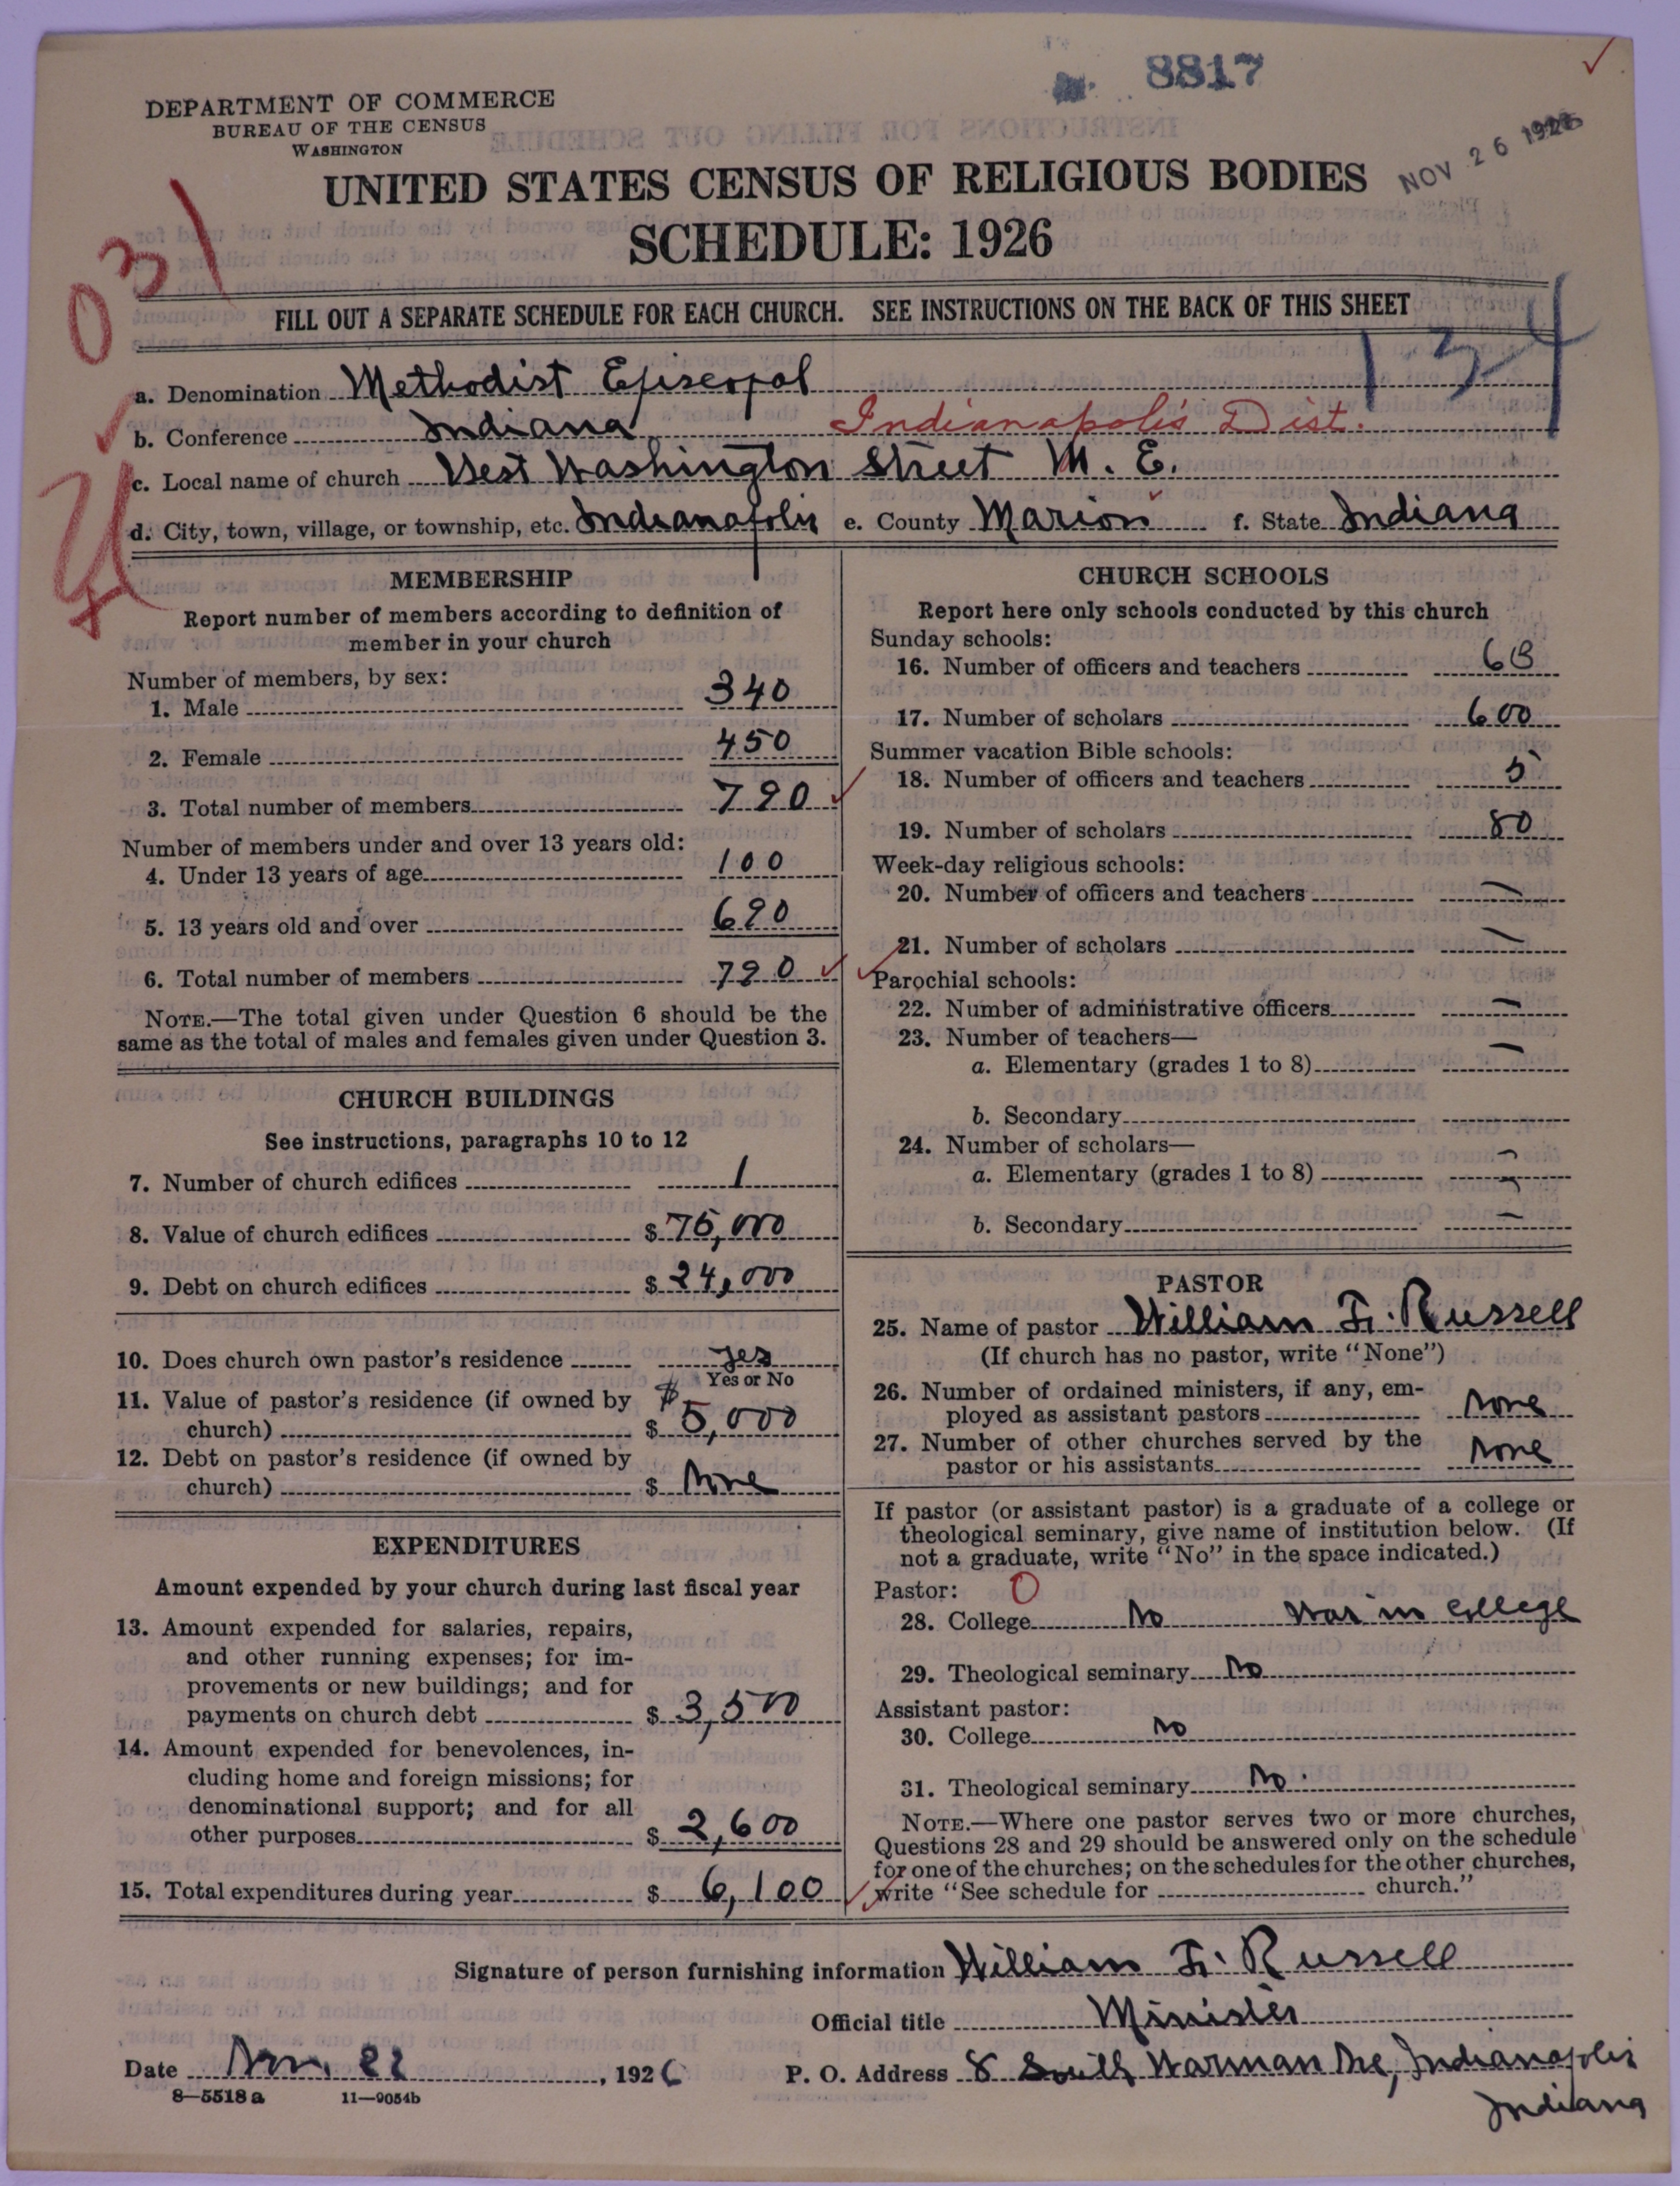 8817
DEPARTMENT OF COMMERCE
BUREAU OF THE CENSUS
WASHINGTON
NOV 26 1926
UNITED STATES CENSUS OF RELIGIOUS BODIES
SCHEDULE: 1926
031
FILL OUT A SEPARATE SCHEDULE FOR EACH CHURCH. SEE INSTRUCTIONS ON THE BACK OF THIS SHEET
134
a. Denomination Methodist Episcopal
b. Conference Indiana Indianapolis Dist.
c. Local name of church West Washington Street M. E.
d. City, town, village, or township, etc. Indianapolis e. County Marion f. State Indiana
MEMBERSHIP
Report number of members according to definition of
member in your church
Number of members, by sex:
1. Male 340
2. Female 450
3. Total number of members 790
Number of members under and over 13 years old:
4. Under 13 years of age 100
5. 13 years old and over 690
6. Total number of members 790
NOTE.—The total given under Question 6 should be the
same as the total of males and females given under Question 3.
CHURCH BUILDINGS
See instructions, paragraphs 10 to 12
7. Number of church edifices 1
8. Value of church edifices $ 75,000
9. Debt on church edifices $ 24,000
10. Does church own pastor's residence yes
Yes or No
11. Value of pastor's residence (if owned by $
church) $ 5,000
12. Debt on pastor's residence (if owned by
church) $ None
EXPENDITURES
Amount expended by your church during last fiscal year
13. Amount expended for salaries, repairs,
and other running expenses; for im-
provements or new buildings; and for
payments on church debt $ 3,500
14. Amount expended for benevolences, in-
cluding home and foreign missions; for
denominational support; and for all
other purposes $ 2,600
15. Total expenditures during year $ 6,100
CHURCH SCHOOLS
Report here only schools conducted by this church
Sunday schools:
16. Number of officers and teachers
17. Number of scholars 600
Summer vacation Bible schools:
18. Number of officers and teachers 5
19. Number of scholars 80
Week-day religious schools:
20. Number of officers and teachers —
21. Number of scholars —
Parochial schools:
22. Number of administrative officers —
23. Number of teachers—
a. Elementary (grades 1 to 8) —
b. Secondary
24. Number of scholars— —
a. Elementary (grades 1 to 8) —
b. Secondary —
PASTOR
25. Name of pastor William F. Russell
(If church has no pastor, write "None")
26. Number of ordained ministers, if any, em-
ployed as assistant pastors None
27. Number of other churches served by the
pastor or his assistants None
If pastor (or assistant pastor) is a graduate of a college or
theological seminary, give name of institution below. (If
not a graduate, write "No" in the space indicated.)
Pastor: 0
28. College No Was in College
29. Theological seminary No
Assistant pastor:
30. College No
31. Theological seminary No.
NOTE.—Where one pastor serves two or more churches,
Questions 28 and 29 should be answered only on the schedule
for one of the churches; on the schedules for the other churches,
write "See schedule for church."
Signature of person furnishing information William F. Russell
Official title Minister
Date Nov. 22, 1926 P. O. Address 8 South Warman Ave, Indianapolis
Indiana
8—5518a 11—9054b